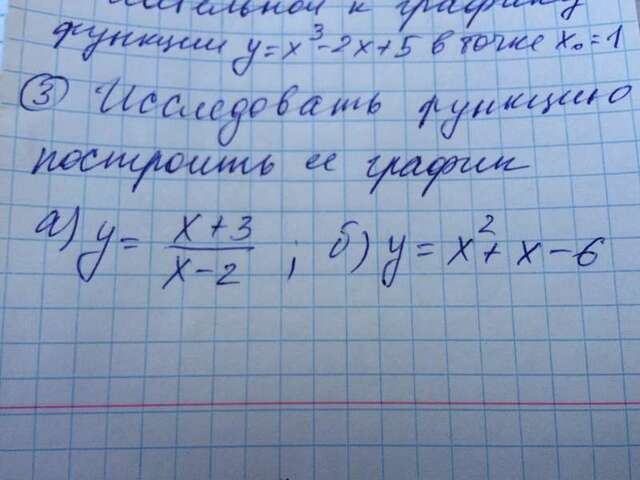 к графику
функции y=x³-2x+5 в точке x₀=1
③ Исследовать функцию
построить ее график
а) y = x+3 / x-2 ; б) y = x² + x - 6